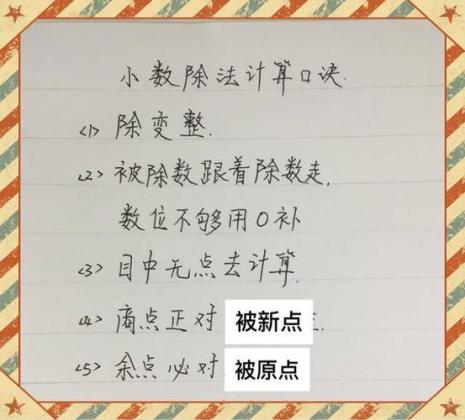 小数除法计算口诀.
<1> 除变整.
<2> 被除数跟着除数走,
数位不够用0补
<3> 目中无点去计算.
<4> 商点正对 被新点
<5> 余点必对 被原点